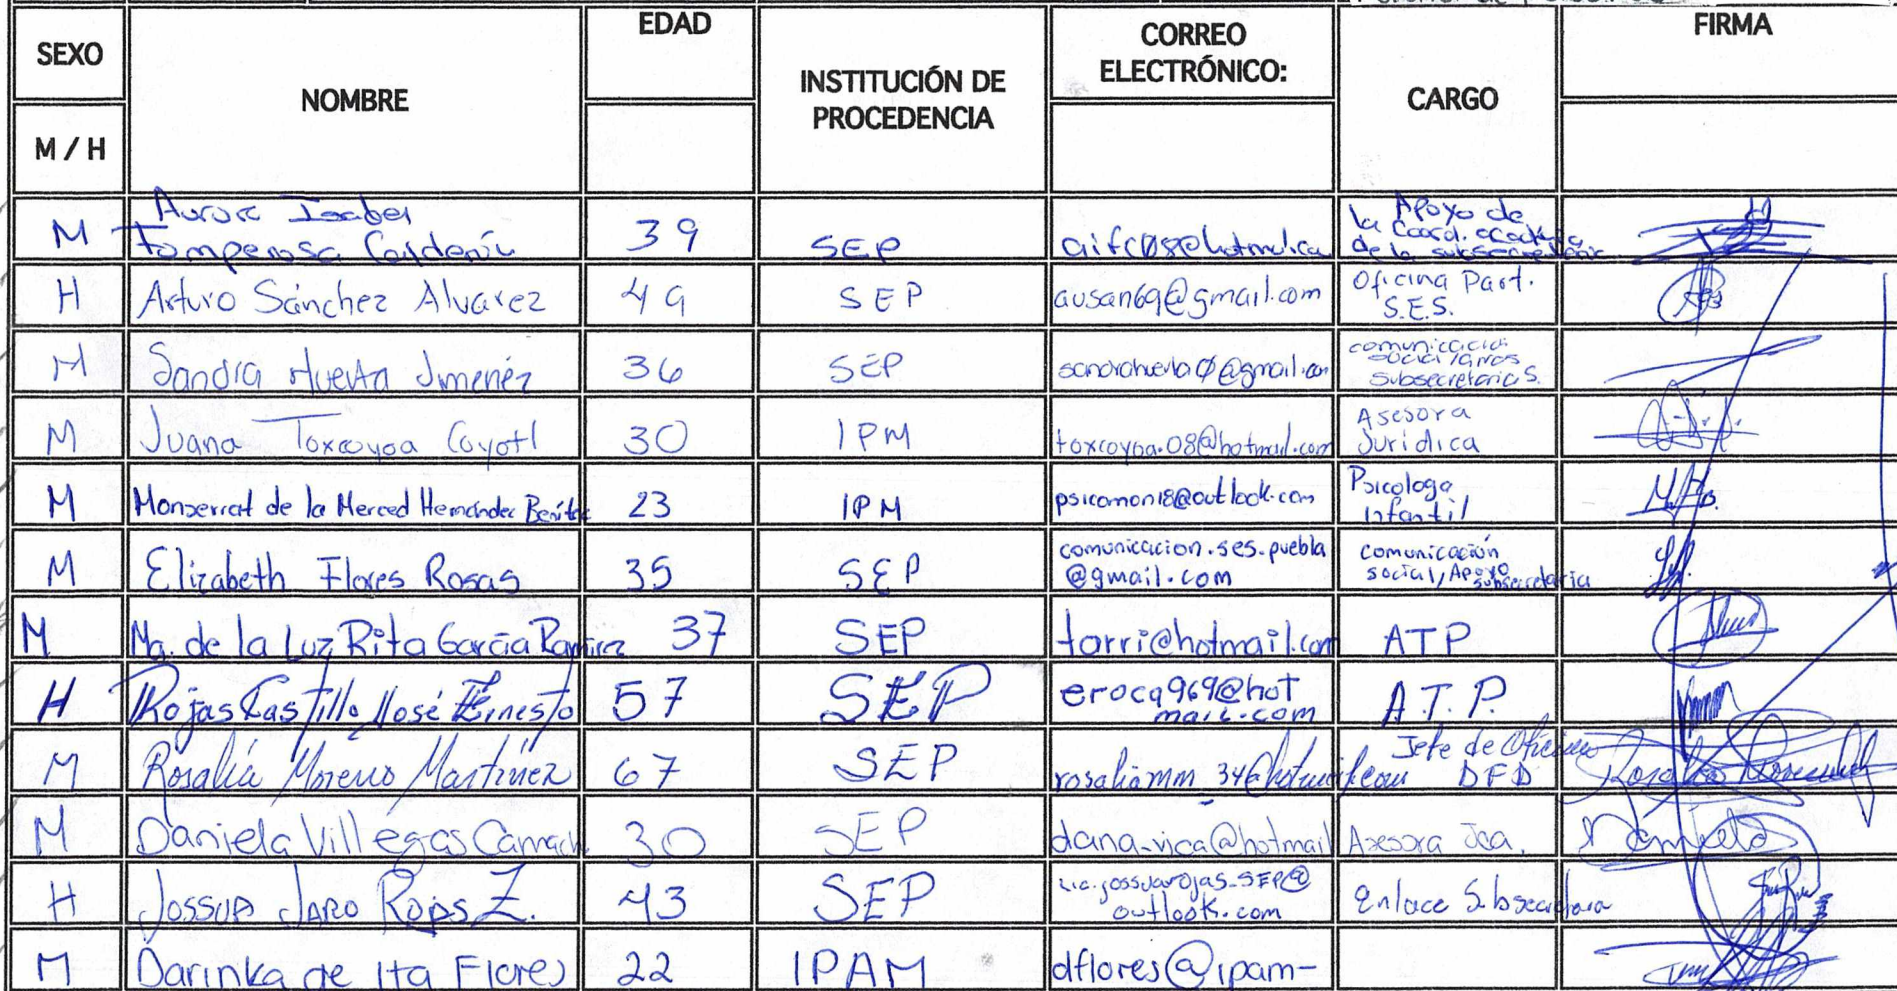 SEXO
M / H
NOMBRE
EDAD
INSTITUCIÓN DE
PROCEDENCIA
CORREO
ELECTRÓNICO:
CARGO
FIRMA
M Aurora Isabel
Tamperosa Calderón 39 SEP aifc08@hotmail.ca Apoyo de
la Coord.
de la subsecretaría
H Arturo Sánchez Alvarez 49 SEP ausan69@gmail.com Oficina Part.
S.E.S.
M Sandra Huerta Jimenéz 36 SEP sandrahuerta0@gmail.com comunicación
social
Subsecretaria S.
M Juana Toxcoyoa Coyotl 30 IPM toxcoyoa.08@hotmail.com Asesora
Jurídica
M Monserrat de la Merced Hernández Benítez 23 IPM psicomon18@outlook.com Psicologa
infantil
M Elizabeth Flores Rosas 35 SEP comunicacion.ses.puebla
@gmail.com comunicación
social, Apoyo
subsecretaria
M Ma. de la Luz Rita García Ramirez 37 SEP torri@hotmail.com ATP
H Rojas Castillo José Ernesto 57 SEP eroca969@hot
mail.com A.T.P.
M Rosalía Moreno Martínez 67 SEP rosaliamm_34@hotmail.com Jefe de Oficina
DFD
M Daniela Villegas Camach 30 SEP dana-vica@hotmail Asesora Jca. Daniela
H Jossua Jaro Rojas Z. 43 SEP Lic.jossuarojas_SEP@
outlook.com Enlace Subsecretara
M Darinka de Ita Flores 22 IPAM dflores@ipam-